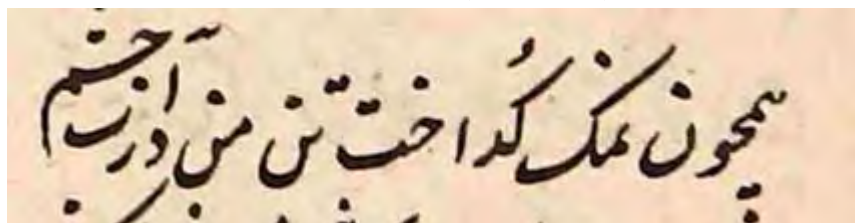 همچون نمک گداخت تن من در آب چشم